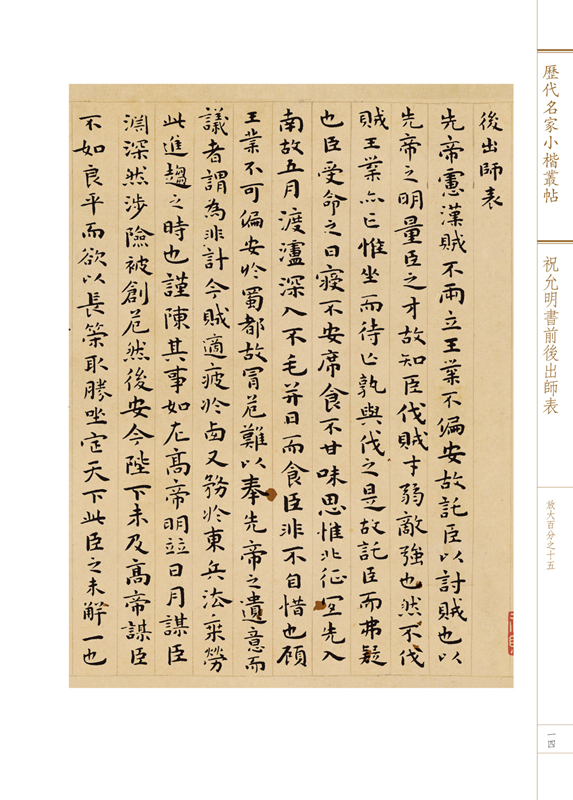 歷代名家小楷叢帖
祝允明書前後出師表
放大百分之十五
一四
後出師表
先帝慮漢賊不兩立王業不偏安故託臣以討賊也以
先帝之明量臣之才故知臣伐賊才弱敵強也然不伐
賊王業亦亡惟坐而待亡孰與伐之是故託臣而弗疑
也臣受命之日寢不安席食不甘味思惟北征宜先入
南故五月渡瀘深入不毛并日而食臣非不自惜也顧
王業不可偏安於蜀都故冒危難以奉先帝之遺意而
議者謂為非計今賊適疲於西又務於東兵法乘勞
此進趨之時也謹陳其事如左高帝明並日月謀臣
淵深然涉險被創危然後安今陛下未及高帝謀臣
不如良平而欲以長策取勝坐定天下此臣之未解一也